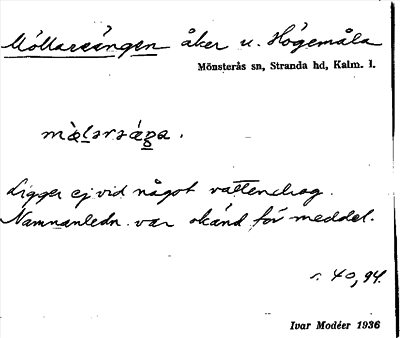 Möllarsängen åker u. Högemåla
Mönsterås sn, Stranda hd, Kalm. l.
Ligger ej vid något vattendrag.
Namnanledn. var okänd för meddel.
s. 40, 94.
Ivar Modéer 1936